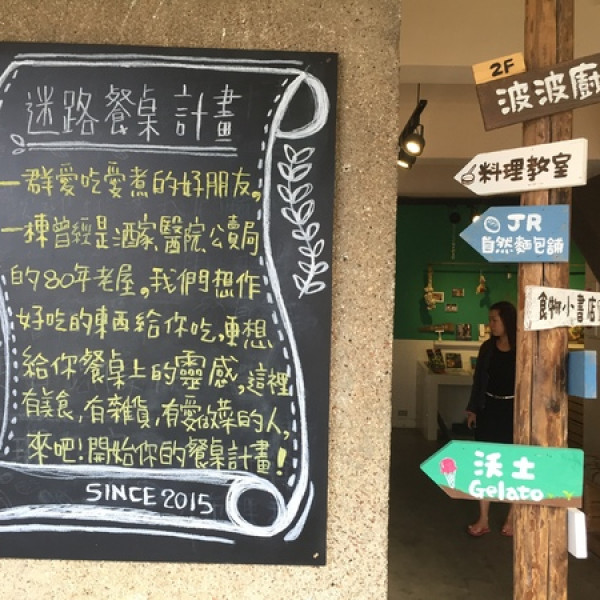 迷路餐桌計畫
一群愛吃愛煮的好朋友,
一棟曾經是酒家、醫院、公賣局
的80年老屋。我們想作
好吃的東西給你吃,更想
給你餐桌上的靈感,這裡
有美食,有雜貨,有愛做菜的人,
來吧!開始你的餐桌計畫!
SINCE 2015
2F
波波廚
料理教室
JR
自然麵包舖
食物小書店
沃土
Gelato